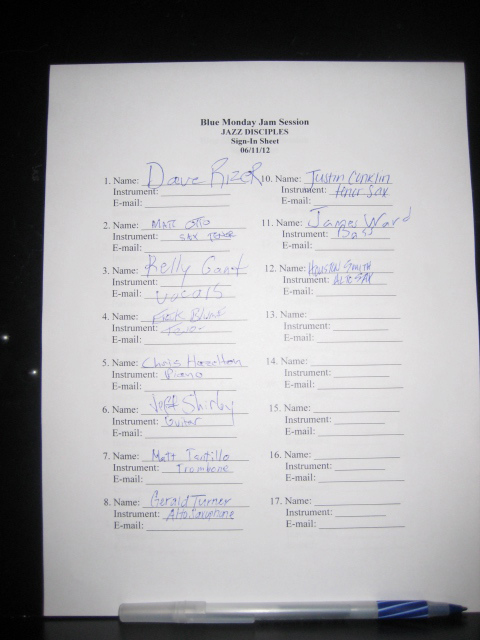 Blue Monday Jam Session
JAZZ DISCIPLES
Sign-In Sheet
06/11/12
1. Name: Dave Rizer
Instrument:
E-mail:
2. Name: Matt Otto
Instrument: Sax Tenor
E-mail:
3. Name: Kelly Gant
Instrument:
E-mail: Vocals
4. Name:
Instrument: Tenor
E-mail:
5. Name: Chris Hazelton
Instrument: Piano
E-mail:
6. Name: Jeff Shirley
Instrument: Guitar
E-mail:
7. Name: Matt
Instrument: Trombone
E-mail:
8. Name: Gerald Turner
Instrument: Alto Saxophone
E-mail:
10. Name: Justin Conklin
Instrument: tenor Sax
E-mail:
11. Name: James Ward
Instrument: Bass
E-mail:
12. Name: Houston Smith
Instrument: Alto Sax
E-mail:
13. Name:
Instrument:
E-mail:
14. Name:
Instrument:
E-mail:
15. Name:
Instrument:
E-mail:
16. Name:
Instrument:
E-mail:
17. Name:
Instrument:
E-mail: